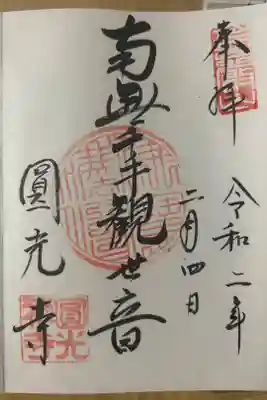 奉拝
令和二年
二月四日
南無千手観世音
圓光寺
圓光寺